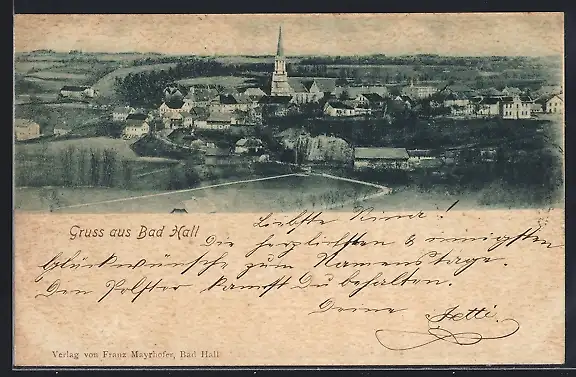 Gruss aus Bad Hall
Liebste Rina!
Die herzlichsten & innigsten
Glückwünsche zum Namenstage.
Den Polster kannst Du behalten.
Deine Jetti.
Verlag von Franz Mayrhofer, Bad Hall